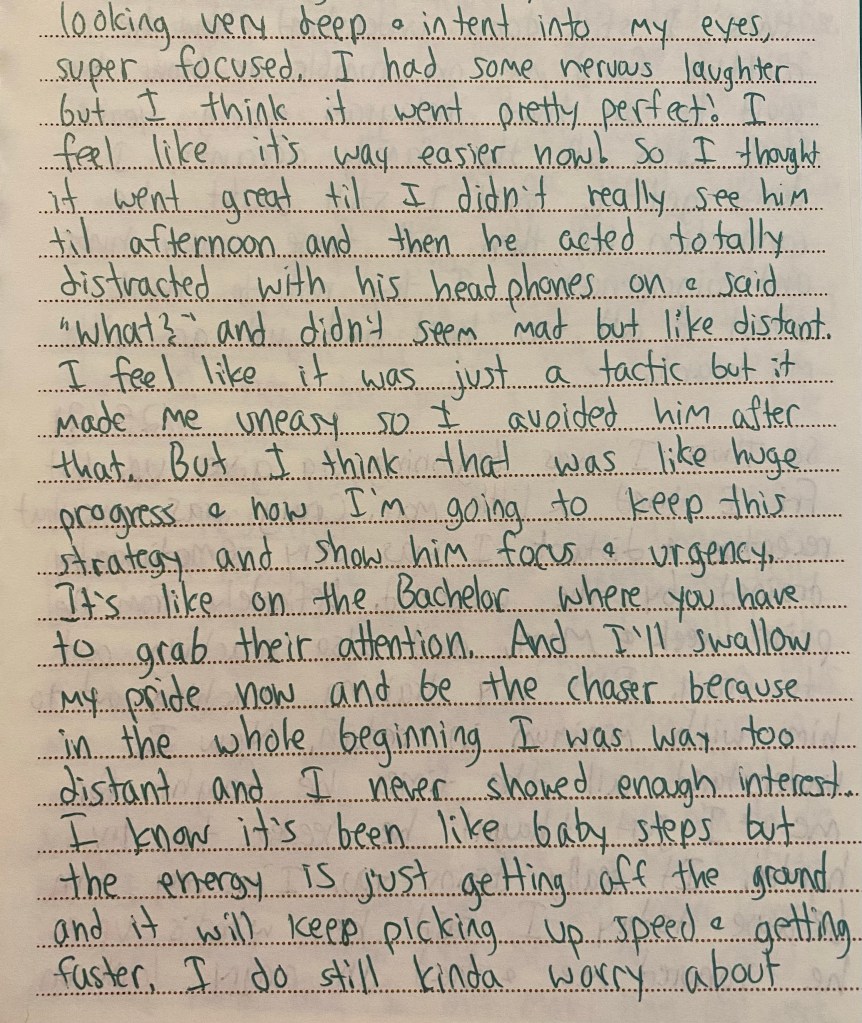 looking very deep & intent into my eyes,
super focused. I had some nervous laughter
but I think it went pretty perfect! I
feel like it's way easier now! So I thought
it went great til I didn't really see him
til afternoon and then he acted totally
distracted with his headphones on & said
"what?" and didn't seem mad but like distant.
I feel like it was just a tactic but it
made me uneasy so I avoided him after
that. But I think that was like huge
progress & now I'm going to keep this
strategy and show him focus & urgency.
It's like on the Bachelor where you have
to grab their attention. And I'll swallow
my pride now and be the chaser because
in the whole beginning I was way too
distant and I never showed enough interest.
I know it's been like baby steps but
the energy is just getting off the ground
and it will keep picking up speed & getting
faster. I do still kinda worry about